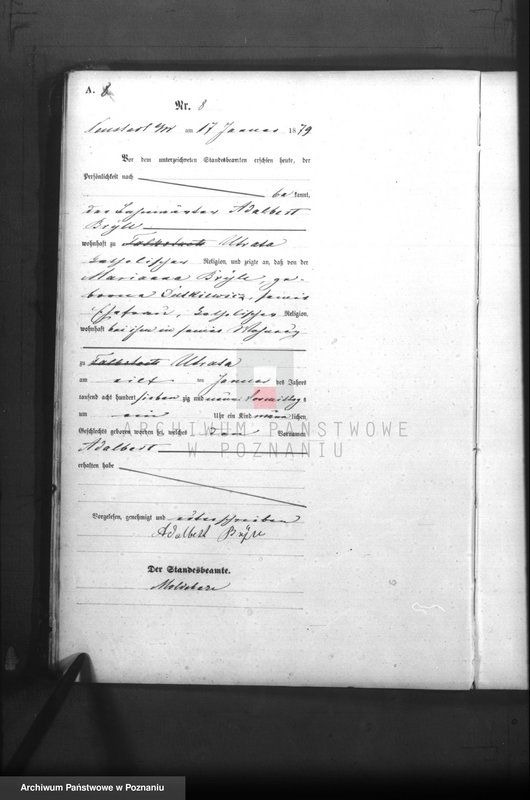 A. 8
Nr. 8
Neustadt a/W am 17 Januar 1879
Vor dem unterzeichneten Standesbeamten erschien heute, der
Persönlichkeit nach
be kannt,
der Adalbert
Bryle
wohnhaft zu Utrata
katholischer Religion, und zeigte an, daß von der
Marianna Bryle, ge-
borene Lutkiewicz, seiner
Ehefrau, katholischer Religion,
wohnhaft bei ihm in seiner Wohnung
zu Utrata
am elf ten Januar des Jahres
tausend acht hundert sieben zig und neun Vormittags
um ein Uhr ein Kind männ lichen
Geschlechts geboren worden sei, welches den Vornamen
Adalbert
erhalten habe
Vorgelesen, genehmigt und unterschrieben
Adalbert Bryle
Der Standesbeamte.
ARCHIWUM PAŃSTWOWE
W POZNANIU
ARCHIWUM PAŃSTWOWE
W POZNANIU
Archiwum Państwowe w Poznaniu